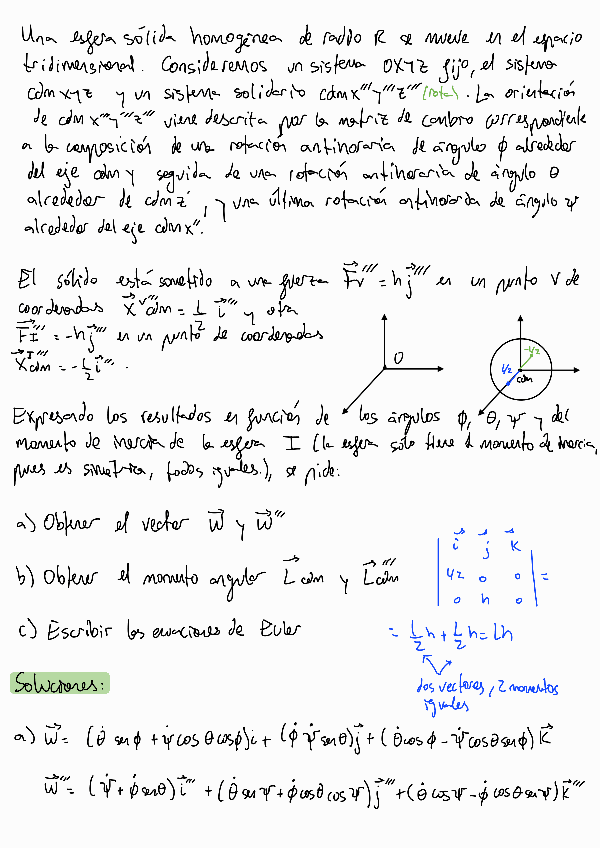 Una esfera sólida homogénea de radio R se mueve en el espacio
tridimensional. Consideremos un sistema OXYZ fijo, el sistema
cdmxyz y un sistema solidario cdmx'''y'''z''' (rota). La orientación
de cdmx'''y'''z''' viene descrita por la matriz de cambio correspondiente
a la composición de una rotación antihoraria de ángulo ϕ alrededor
del eje cdmy seguida de una rotación antihoraria de ángulo θ
alrededor de cdmz', y una última rotación antihoraria de ángulo ψ
alrededor del eje cdmx''.
El sólido está sometido a una fuerza F⃗v''' = h j⃗''' en un punto V de
coordenadas X⃗ᵛ'''cdm = L/2 i⃗''' y otra
F⃗I''' = -h j⃗''' en un punto de coordenadas
X⃗ᴵ'''cdm = -L/2 i⃗'''.
O
-L/2
L/2
cdm
Expresando los resultados en función de los ángulos ϕ, θ, ψ y del
momento de inercia de la esfera I (la esfera solo tiene 1 momento de inercia,
pues es simétrica, todos iguales.), se pide:
a) Obtener el vector W⃗ y W⃗'''
b) Obtener el momento angular L⃗cdm y L⃗cdm'''
c) Escribir las ecuaciones de Euler
| i⃗ j⃗ k⃗ |
| L/2 0 0 | =
| 0 h 0 |
= L/2 h + L/2 h = Lh
dos vectores, 2 momentos
iguales
Soluciones:
a) W⃗ = (θ̇ senϕ + ψ̇ cosθ cosϕ)i + (ϕ̇ ψ̇ senθ)j⃗ + (θ̇ cosϕ - ψ̇ cosθ senϕ)k⃗
W⃗''' = (ψ̇ + ϕ̇ senθ) i⃗''' + (θ̇ senψ + ϕ̇ cosθ cosψ) j⃗''' + (θ̇ cosψ - ϕ̇ cosθ senψ) k⃗'''